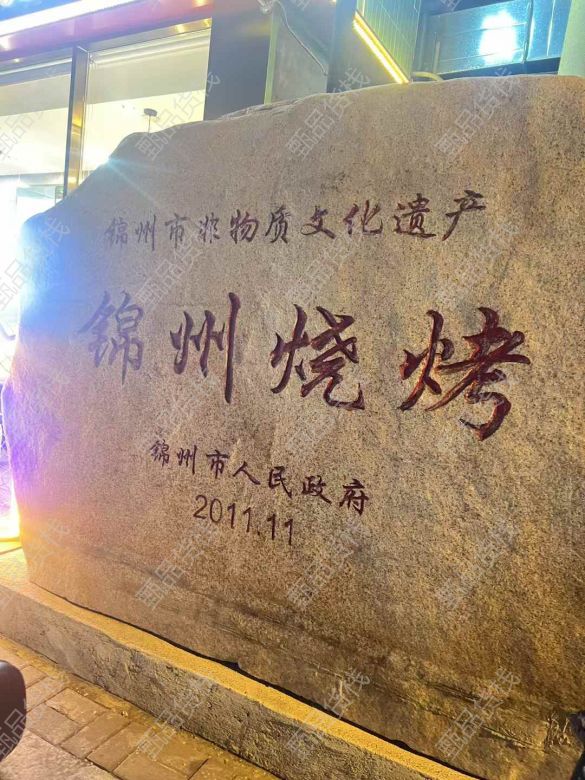 锦州市非物质文化遗产
錦州烧烤
錦州市人民政府
2011.11
甄品货栈